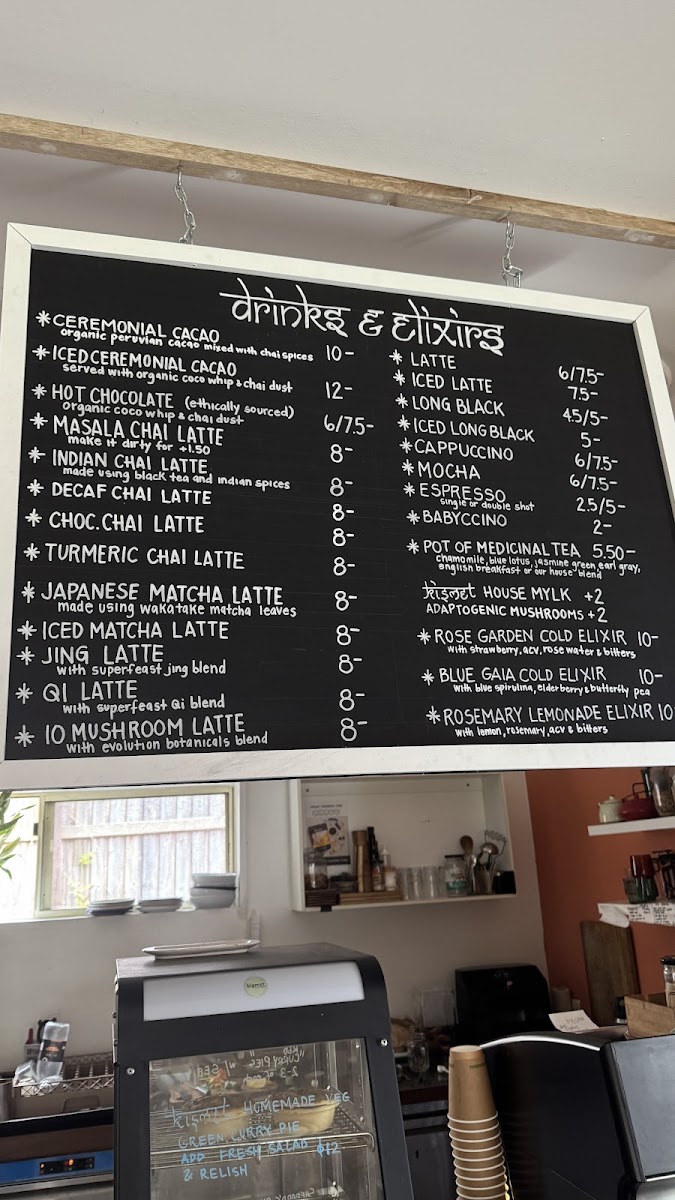 drinks & elixirs
* CEREMONIAL CACAO 10-
organic peruvian cacao mixed with chai spices
* ICED CEREMONIAL CACAO 12-
served with organic coco whip & chai dust
* HOT CHOCOLATE (ethically sourced) 6/7.5-
organic coco whip & chai dust
* MASALA CHAI LATTE 8-
make it dirty for +1.50
* INDIAN CHAI LATTE 8-
made using black tea and indian spices
* DECAF CHAI LATTE 8-
* CHOC. CHAI LATTE 8-
* TURMERIC CHAI LATTE 8-
* JAPANESE MATCHA LATTE 8-
made using wakatake matcha leaves
* ICED MATCHA LATTE 8-
* JING LATTE 8-
with superfeast jing blend
* QI LATTE 8-
with superfeast Qi blend
* 10 MUSHROOM LATTE 8-
with evolution botanicals blend
* LATTE 6/7.5-
* ICED LATTE 7.5-
* LONG BLACK 4.5/5-
* ICED LONG BLACK 5-
* CAPPUCCINO 6/7.5-
* MOCHA 6/7.5-
* ESPRESSO 2.5/5-
single or double shot
* BABYCCINO 2-
* POT OF MEDICINAL TEA 5.50-
chamomile, blue lotus, jasmine green, earl gray,
english breakfast or our house blend
kismet HOUSE MYLK +2
ADAPTOGENIC MUSHROOMS +2
* ROSE GARDEN COLD ELIXIR 10-
with strawberry, acv, rose water & bitters
* BLUE GAIA COLD ELIXIR 10-
with blue spirulina, elderberry & butterfly pea
* ROSEMARY LEMONADE ELIXIR 10
with lemon, rosemary, acv & bitters
kismet HOMEMADE VEG
GREEN CURRY PIE
ADD FRESH SALAD $12
& RELISH